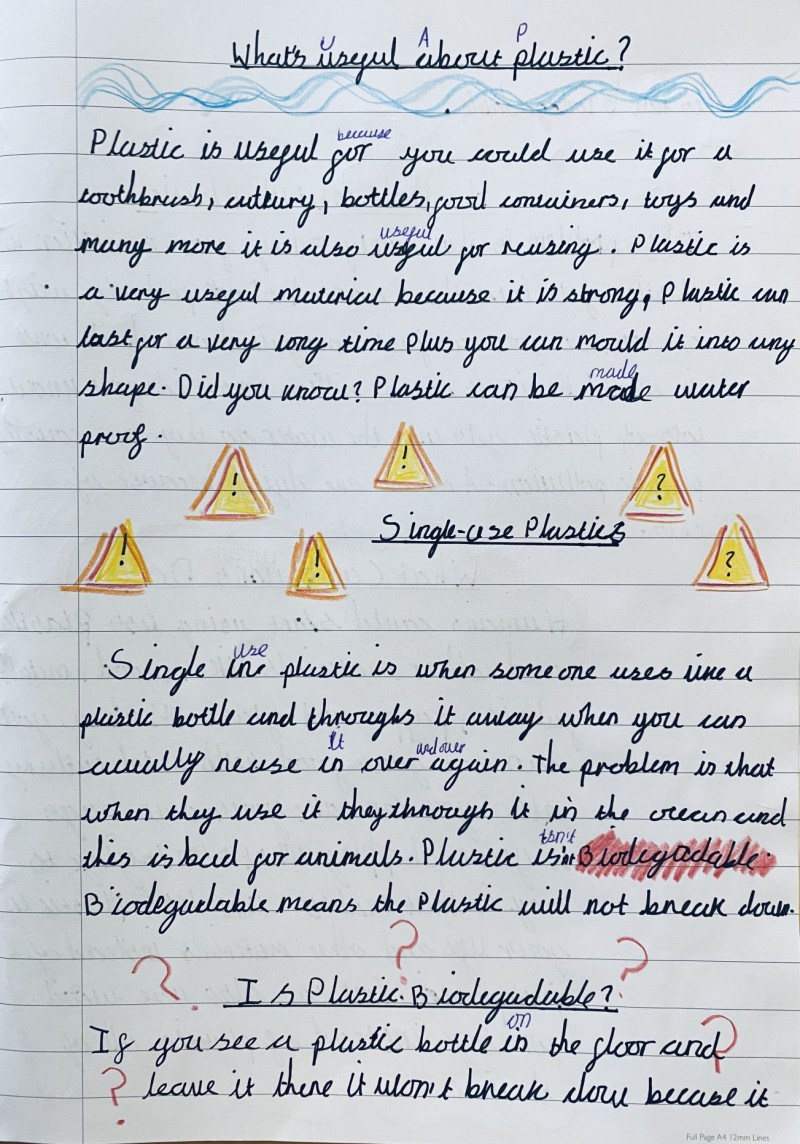 What's useful about plastic?
U A P
Plastic is useful for because you could use it for a
toothbrush, cutlury, bottles, food containers, toys and
many more it is also useful useful for reusing. Plastic is
a very useful material because it is strong, Plastic can
last for a very long time Plus you can mould it into any
shape. Did you know? Plastic can be made made water
proof.
! ! ?
Single-use Plastics
! ! ?
Single use plastic is when someone uses like a
plastic bottle and throughs it away when you can
actually reuse it over and over again. The problem is that
when they use it they through it in the ocean and
this is bad for animals. Plastic isn't Biodegadable.
Biodegadable means the Plastic will not break down.
? ? ?
Is Plastic Biodegadable?
If you see a plastic bottle on the floor and ?
? leave it there it won't break dow becuse it
Full Page A4 12mm Lines